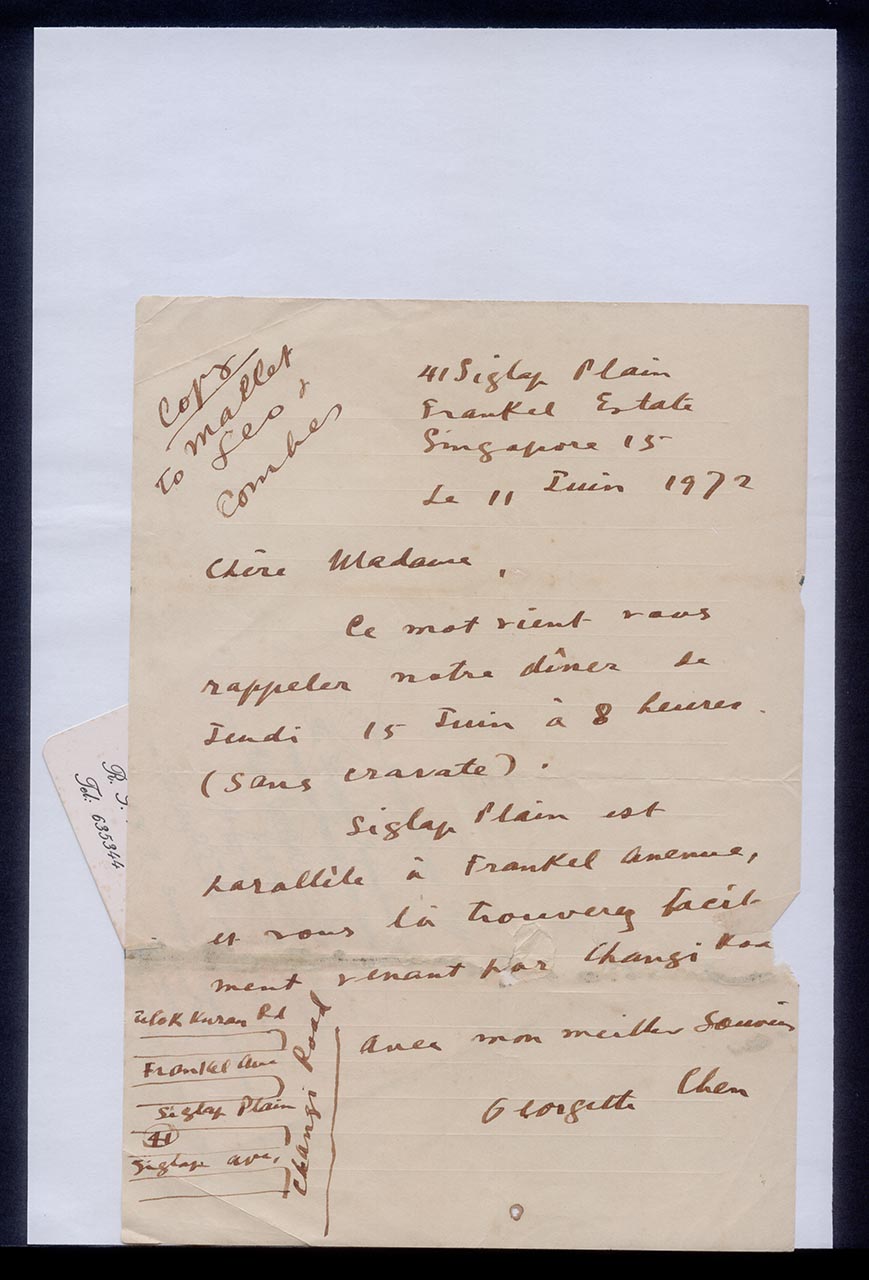 Copy
to Mallet
Seo,
Combes
41 Siglap Plain
Frankel Estate
Singapore 15
Le 11 Juin 1972
Chère Madame,
Ce mot vient vous
rappeler notre dîner de
Jeudi 15 Juin à 8 heures.
(Sans cravate).
Siglap Plain est
parallèle à Frankel Avenue,
et vous la trouverez facil-
ment venant par Changi Roa
Avec mon meilleur Souvenir
Georgette Chen
Telok Kurau Rd
Frankel Ave
Siglap Plain
41
Siglap Ave,
Changi Road
R. J.
Tel: 635344